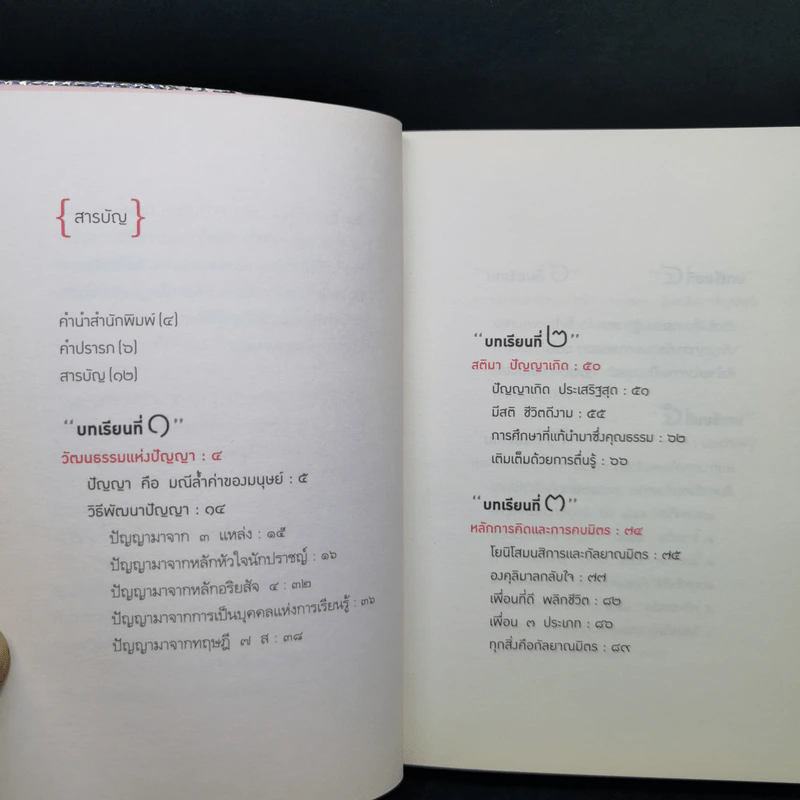 {สารบัญ}
คำนำสำนักพิมพ์ (๔)
คำปรารภ (๖)
สารบัญ (๑๒)
“บทเรียนที่ ๑”
วัฒนธรรมแห่งปัญญา : ๔
ปัญญา คือ มณีล้ำค่าของมนุษย์ : ๕
วิธีพัฒนาปัญญา : ๑๔
ปัญญามาจาก ๓ แหล่ง : ๑๕
ปัญญามาจากหลักหัวใจนักปราชญ์ : ๑๖
ปัญญามาจากหลักอริยสัจ ๔ : ๓๒
ปัญญามาจากการเป็นบุคคลแห่งการเรียนรู้ : ๓๖
ปัญญามาจากทฤษฎี ๗ ส : ๓๘
“บทเรียนที่ ๒”
สติมา ปัญญาเกิด : ๕๐
ปัญญาเกิด ประเสริฐสุด : ๕๑
มีสติ ชีวิตดีงาม : ๕๕
การศึกษาที่แท้นำมาซึ่งคุณธรรม : ๖๒
เติมเต็มด้วยการตื่นรู้ : ๖๖
“บทเรียนที่ ๓”
หลักการคิดและการคบมิตร : ๗๔
โยนิโสมนสิการและกัลยาณมิตร : ๗๕
องคุลิมาลกลับใจ : ๗๗
เพื่อนที่ดี พลิกชีวิต : ๘๒
เพื่อน ๓ ประเภท : ๘๖
ทุกสิ่งคือกัลยาณมิตร : ๘๙